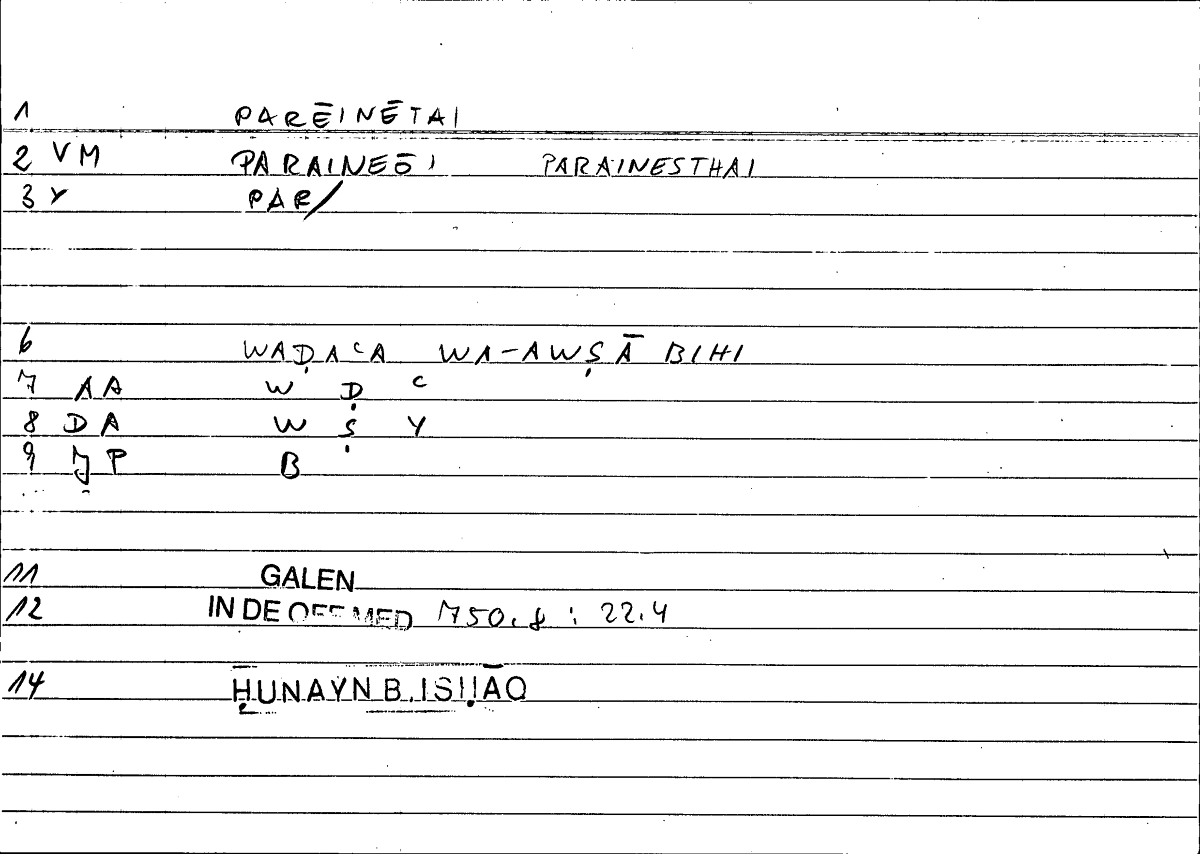 1 PARĒINĒTAI
2 VM PARAINEŌ, PARAINESTHAI
3 Y PAR/
6 WAḌAʿA WA-AWṢĀ BIHI
7 AA W Ḍ ʿ
8 DA W Ṣ Y
9 JP B
11 GALEN
12 IN DE OFF MED 750.8 : 22.4
14 ḤUNAYN B. ISḤĀQ